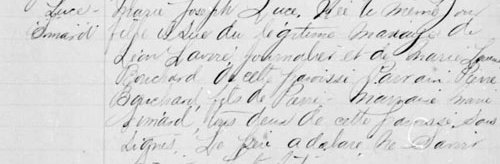 Luce
Simard
Marie Joseph Luce, née le même jour
fille issue du légitime mariage de
Léon Savoie, journalier et de Marie Louise
Bouchard de cette paroisse. Parrain Pierre
Bouchard, fils de Pierre. Marraine Marie
Simard, tous deux de cette paroisse, sous
signés. Le père a déclaré ne savoir